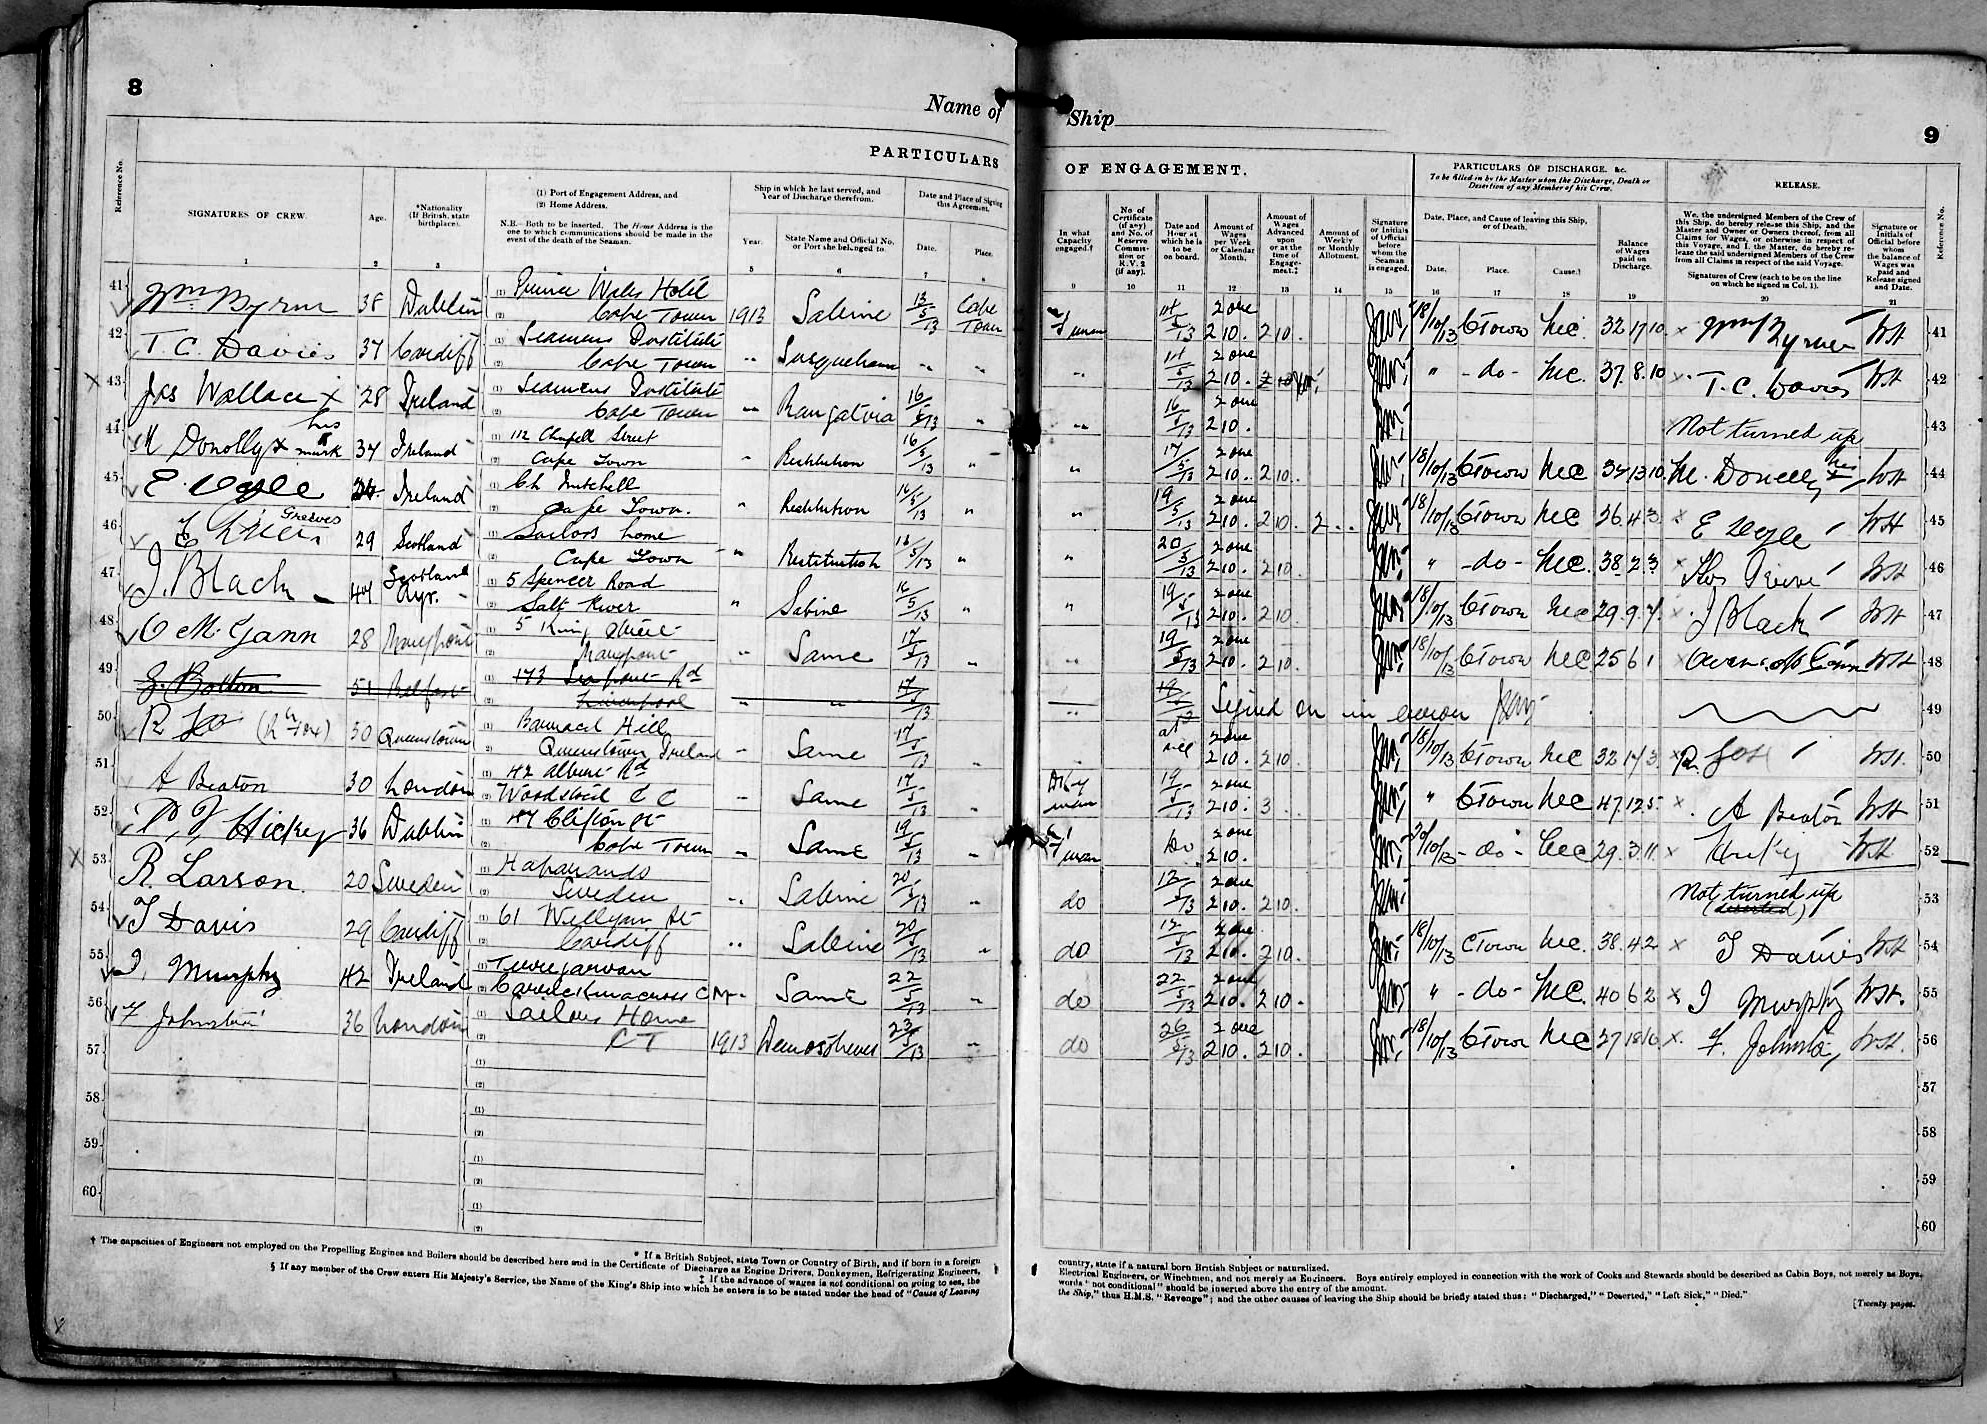 8
Name of Ship
9
PARTICULARS OF ENGAGEMENT.
PARTICULARS OF DISCHARGE, &c.
To be filled in by the Master upon the Discharge, Death or Desertion of any Member of his Crew.
RELEASE.
Reference No.
SIGNATURES OF CREW.
Age.
*Nationality (If British, state birthplace).
(1) Port of Engagement Address, and
(2) Home Address.
N.B.—Both to be inserted. The Home Address is the one to which communications should be made in the event of the death of the Seaman.
Ship in which he last served, and Year of Discharge therefrom.
Year.
State Name and Official No. or Port she belonged to.
Date and Place of Signing this Agreement.
Date.
Place.
In what Capacity engaged.†
No. of Certificate (if any) and No. of Reserve Commission or R.V. 2 (if any).
Date and Hour at which he is to be on board.
Amount of Wages per Week or Calendar Month.
Amount of Wages Advanced upon or at the time of Engagement.‡
Amount of Weekly or Monthly Allotment.
Signature or Initials of Official before whom the Seaman is engaged.
Date, Place, and Cause of leaving this Ship, or of Death.
Date.
Place.
Cause.§
Balance of Wages paid on Discharge.
We, the undersigned Members of the Crew of this Ship, do hereby release this Ship, and the Master and Owner or Owners thereof, from all Claims for Wages, or otherwise in respect of this Voyage, and I, the Master, do hereby release the said undersigned Members of the Crew from all Claims in respect of the said Voyage.
Signatures of Crew (each to be on the line on which he signed in Col. 1).
Signature or Initials of Official before whom the balance of Wages was paid and Release signed and Date.
Reference No.
1 2 3 4 5 6 7 8 9 10 11 12 13 14 15 16 17 18 19 20 21
41 Wm Byrne 38 Dublin (1) Prince Wales Hotel (2) Cape Town 1913 Sabine 13/5/13 Cape Town 2 10. 2 10. 18/10/13 CTown 32 17 10 x Wm Byrne WH 41
42 T. C. Davies 37 Cardiff (1) Seamens Institute (2) Cape Town " Susquehanna " " " 14/5/13 2 10. " -do- 37. 8. 10 T. C. Davies WH 42
x 43 Jas Wallace x 28 Ireland (1) Seamens Institute (2) Cape Town " Rangatira 16/5/13 " " 16/5/13 2 10. Not turned up 43
44 M Donolly x his mark 34 Ireland (1) 112 Chapell Street (2) Cape Town " Restitution 16/5/13 " " 17/5/13 2 10. 2 10. 18/10/13 CTown 34 13 10 M. Donelly his x WH 44
45 Ireland (1) Ch Mitchell (2) Cape Town. " Restitution 16/5/13 " " 19/5/13 2 10. 2 10. 2 .. 18/10/13 CTown 26. 4. 3 WH 45
46 Greeves 29 Scotland (1) Sailors home (2) Cape Town " Restitution 16/5/13 " " 20/5/13 2 10. 2 10 " -do- 38. 2. 3 WH 46
47 J. Black 44 Scotland Ayr. (1) 5 Spencer Road (2) Salt River " Sabine 16/5/13 " " 19/5/13 2 10. 2 10 18/10/13 CTown 29. 9. 7. J Black WH 47
48 O McGann 28 Maryport (1) 5 King Street (2) Maryport " Same 17/5/13 " " 19/5/13 2 10. 2 10. 18/10/13 CTown 25 6 1 Owen McGann WH 48
49 Bolton 51 Belfast (1) 173 Rd (2) Liverpool " " 17/5/13 " Signed on in error 49
50 R Fox (R Fox) 30 Queenstown (1) Barrack Hill (2) Queenstown Ireland " Same 17/5/13 " 2 10. 2 10. 18/10/13 CTown 32 R Fox WH. 50
51 A Beaton 30 London (1) 42 Albert Rd (2) Woodstock C C " Same 17/5/13 " 19/5/13 2 10. 3 . " CTown 47. 12. 5. x A Beaton WH 51
52 P. J Hickey 36 Dublin (1) 47 Clifton St (2) Cape Town " Same 19/5/13 " Do 2 10. 20/10/13 -do- 29. 3. 11. x Hickey WH 52
x 53 R. Larson. 20 Sweden (1) Haparanda (2) Sweden " Sabine 20/5/13 " do 2 10. 2 10. Not turned up (deserted) 53
54 T Davis 29 Cardiff (1) 61 Wellyan St (2) Cardiff " Sabine 20/5/13 " do 2 10. 2 10. 18/10/13 CTown 38. 4 2 x T Davies WH 54
55 J. Murphy 42 Ireland (1) (2) " Same 22/5/13 " do 22/5/13 2 10. 2 10. " -do- 40 6 2 x J Murphy WH. 55
56 F Johnston 36 London (1) Sailors Home (2) C T 1913 Demosthenes 23/5/13 " do 26/5/13 2 10. 2 10. 18/10/13 CTown 27 18 10 x. F. Johnston WH. 56
57 (1) (2) 57
58 (1) (2) 58
59 (1) (2) 59
60 (1) (2) 60
* If a British Subject, state Town or Country of Birth, and if born in a foreign country, state if a natural born British Subject or naturalized.
† The capacities of Engineers not employed on the Propelling Engines and Boilers should be described here and in the Certificate of Discharge as Engine Drivers, Donkeymen, Refrigerating Engineers, Electrical Engineers, or Winchmen, and not merely as Engineers. Boys entirely employed in connection with the work of Cooks and Stewards should be described as Cabin Boys, not merely as Boys.
‡ If the advance of wages is not conditional on going to sea, the words "not conditional" should be inserted above the entry of the amount.
§ If any member of the Crew enters His Majesty's Service, the Name of the King's Ship into which he enters is to be stated under the head of "Cause of Leaving the Ship," thus H.M.S. "Revenge"; and the other causes of leaving the Ship should be briefly stated thus: "Discharged," "Deserted," "Left Sick," "Died."
[Twenty pages.